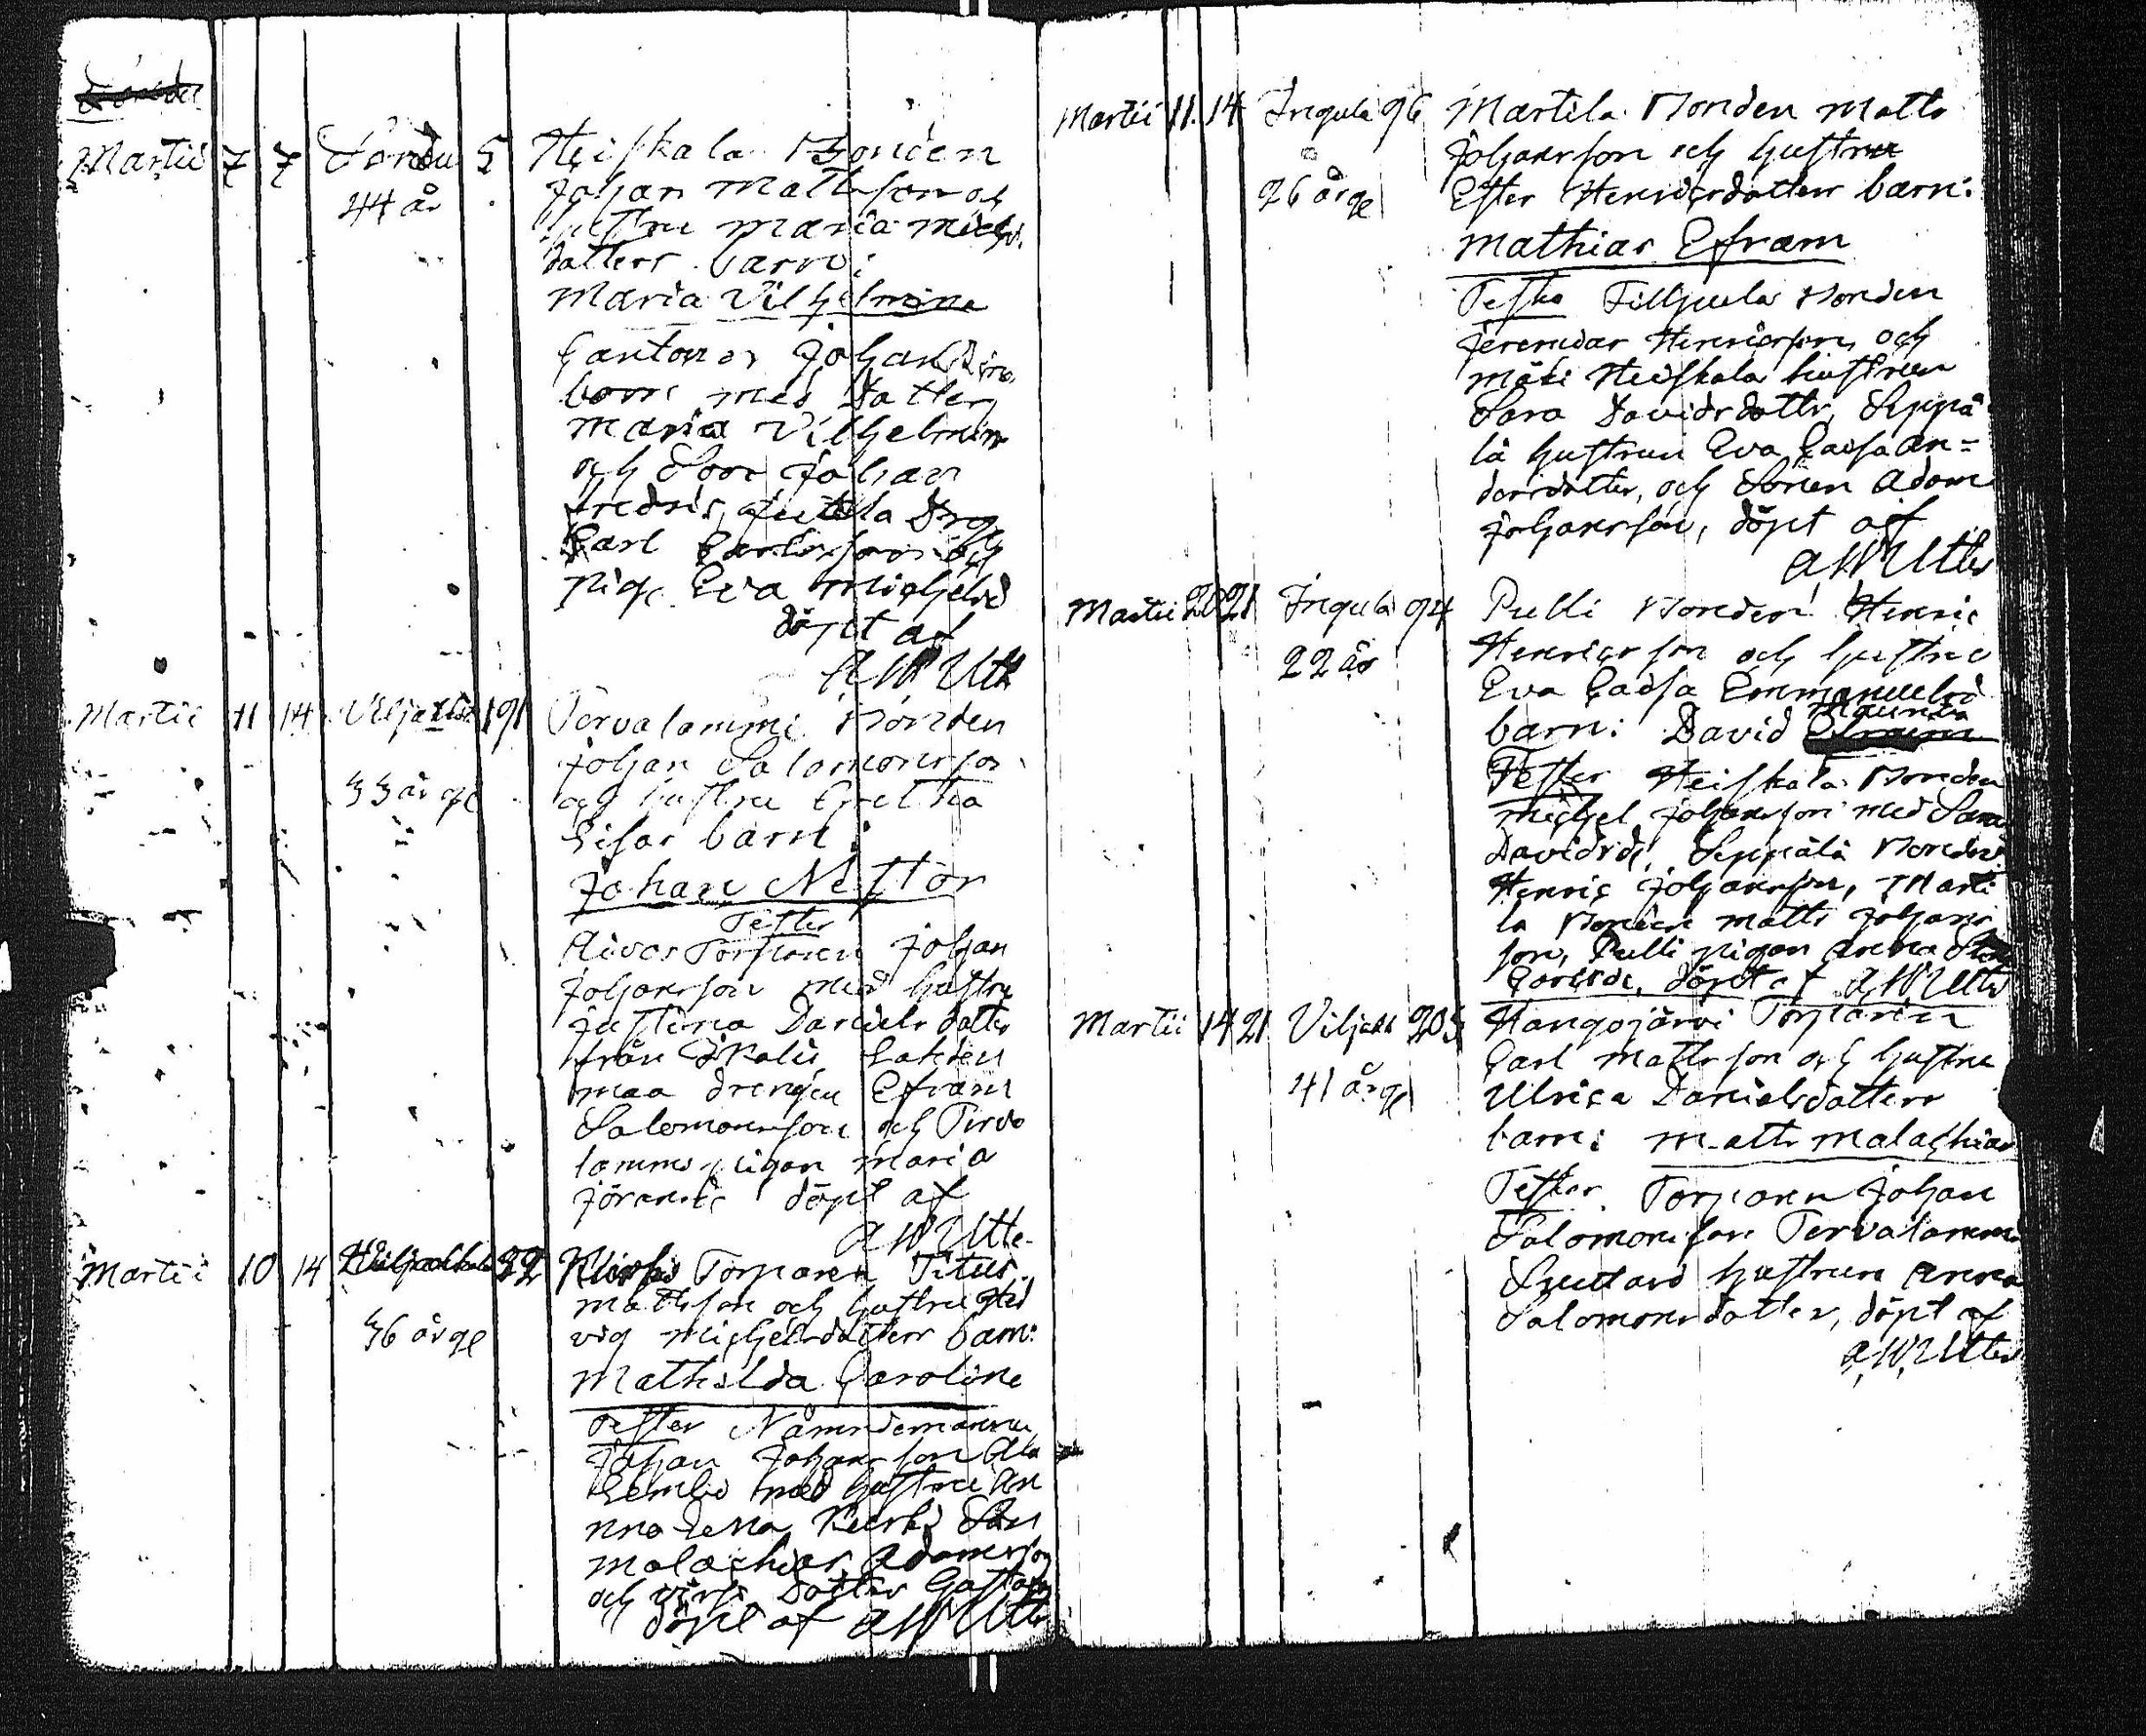 Martii 7 7 5 Heiskala Bonden
44 år Johan Mattsson och
Hustru Maria Michels
datters barn:
Maria Vilhelmina
Cantorn Johan
med Datter
Maria Vilhelmin
och Son Johan
Fredric, Drg
Carl Carlsson och
Pig. Eva Michelsd
döpt af
A W Utter
Martii 11 14 191 Tervalammi Bonden
Johan Salomonsson
33 år ge och hustru Gretha
Lisas barn:
Johan Nestor
Tester
Torparen Johan
Johansson med hustru
Justina Daniels datter
från
maa drengen Efram
Salomonsson och Terva
lammi pigan Maria
döpt af
A W Utter
Martii 10 14 32 Torparen Titus
Mattsson och hustru Hed
36 år ge vig Michelsdotters barn:
Mathilda Carolina
Tester Nämndemannen
Johan Johansson Ala
med hustru An
na Lena, Son
Malachias Adamsson
och Dotter
döpt af A W Utter
Martii 11. 14 Ingula 96 Martila Bonden Matts
Johansson och hustru
26 år ge Ester Henricsdotters barn:
Mathias Efram
Bonden
Jeremias Henricsson och
Mäki Heiskala hustrun
Sara Davidsdottr, Seppä
lä hustrun Eva Caisa An=
dersdotter, och Sonen Adam
Johansson, döpt af
A W Utter
Martii 20 21 Ingula 94 Pulli Bonden Henric
22 år Henricsson och hustru
Eva Caisa Emmanuelsd
Mauritz
barn: David
Tester Heiskala Bonden
Michel Johansson med Sara
Davidsd, Seppälä Bonden
Henric Johansson, Marti
la Bonden Matts Johans
son, Pulli pigan Anna
döpt af A W Utter
Martii 14 21 205 Hangojärvi Torparen
Carl Mattsson och hustru
41 år ge Ulrica Danielsdotters
barn: Matts Malachias
Tester Torparen Johan
Salomonsson Tervalammi
hustrun Anna
Salomonsdotter, döpt af
A. W. Utter